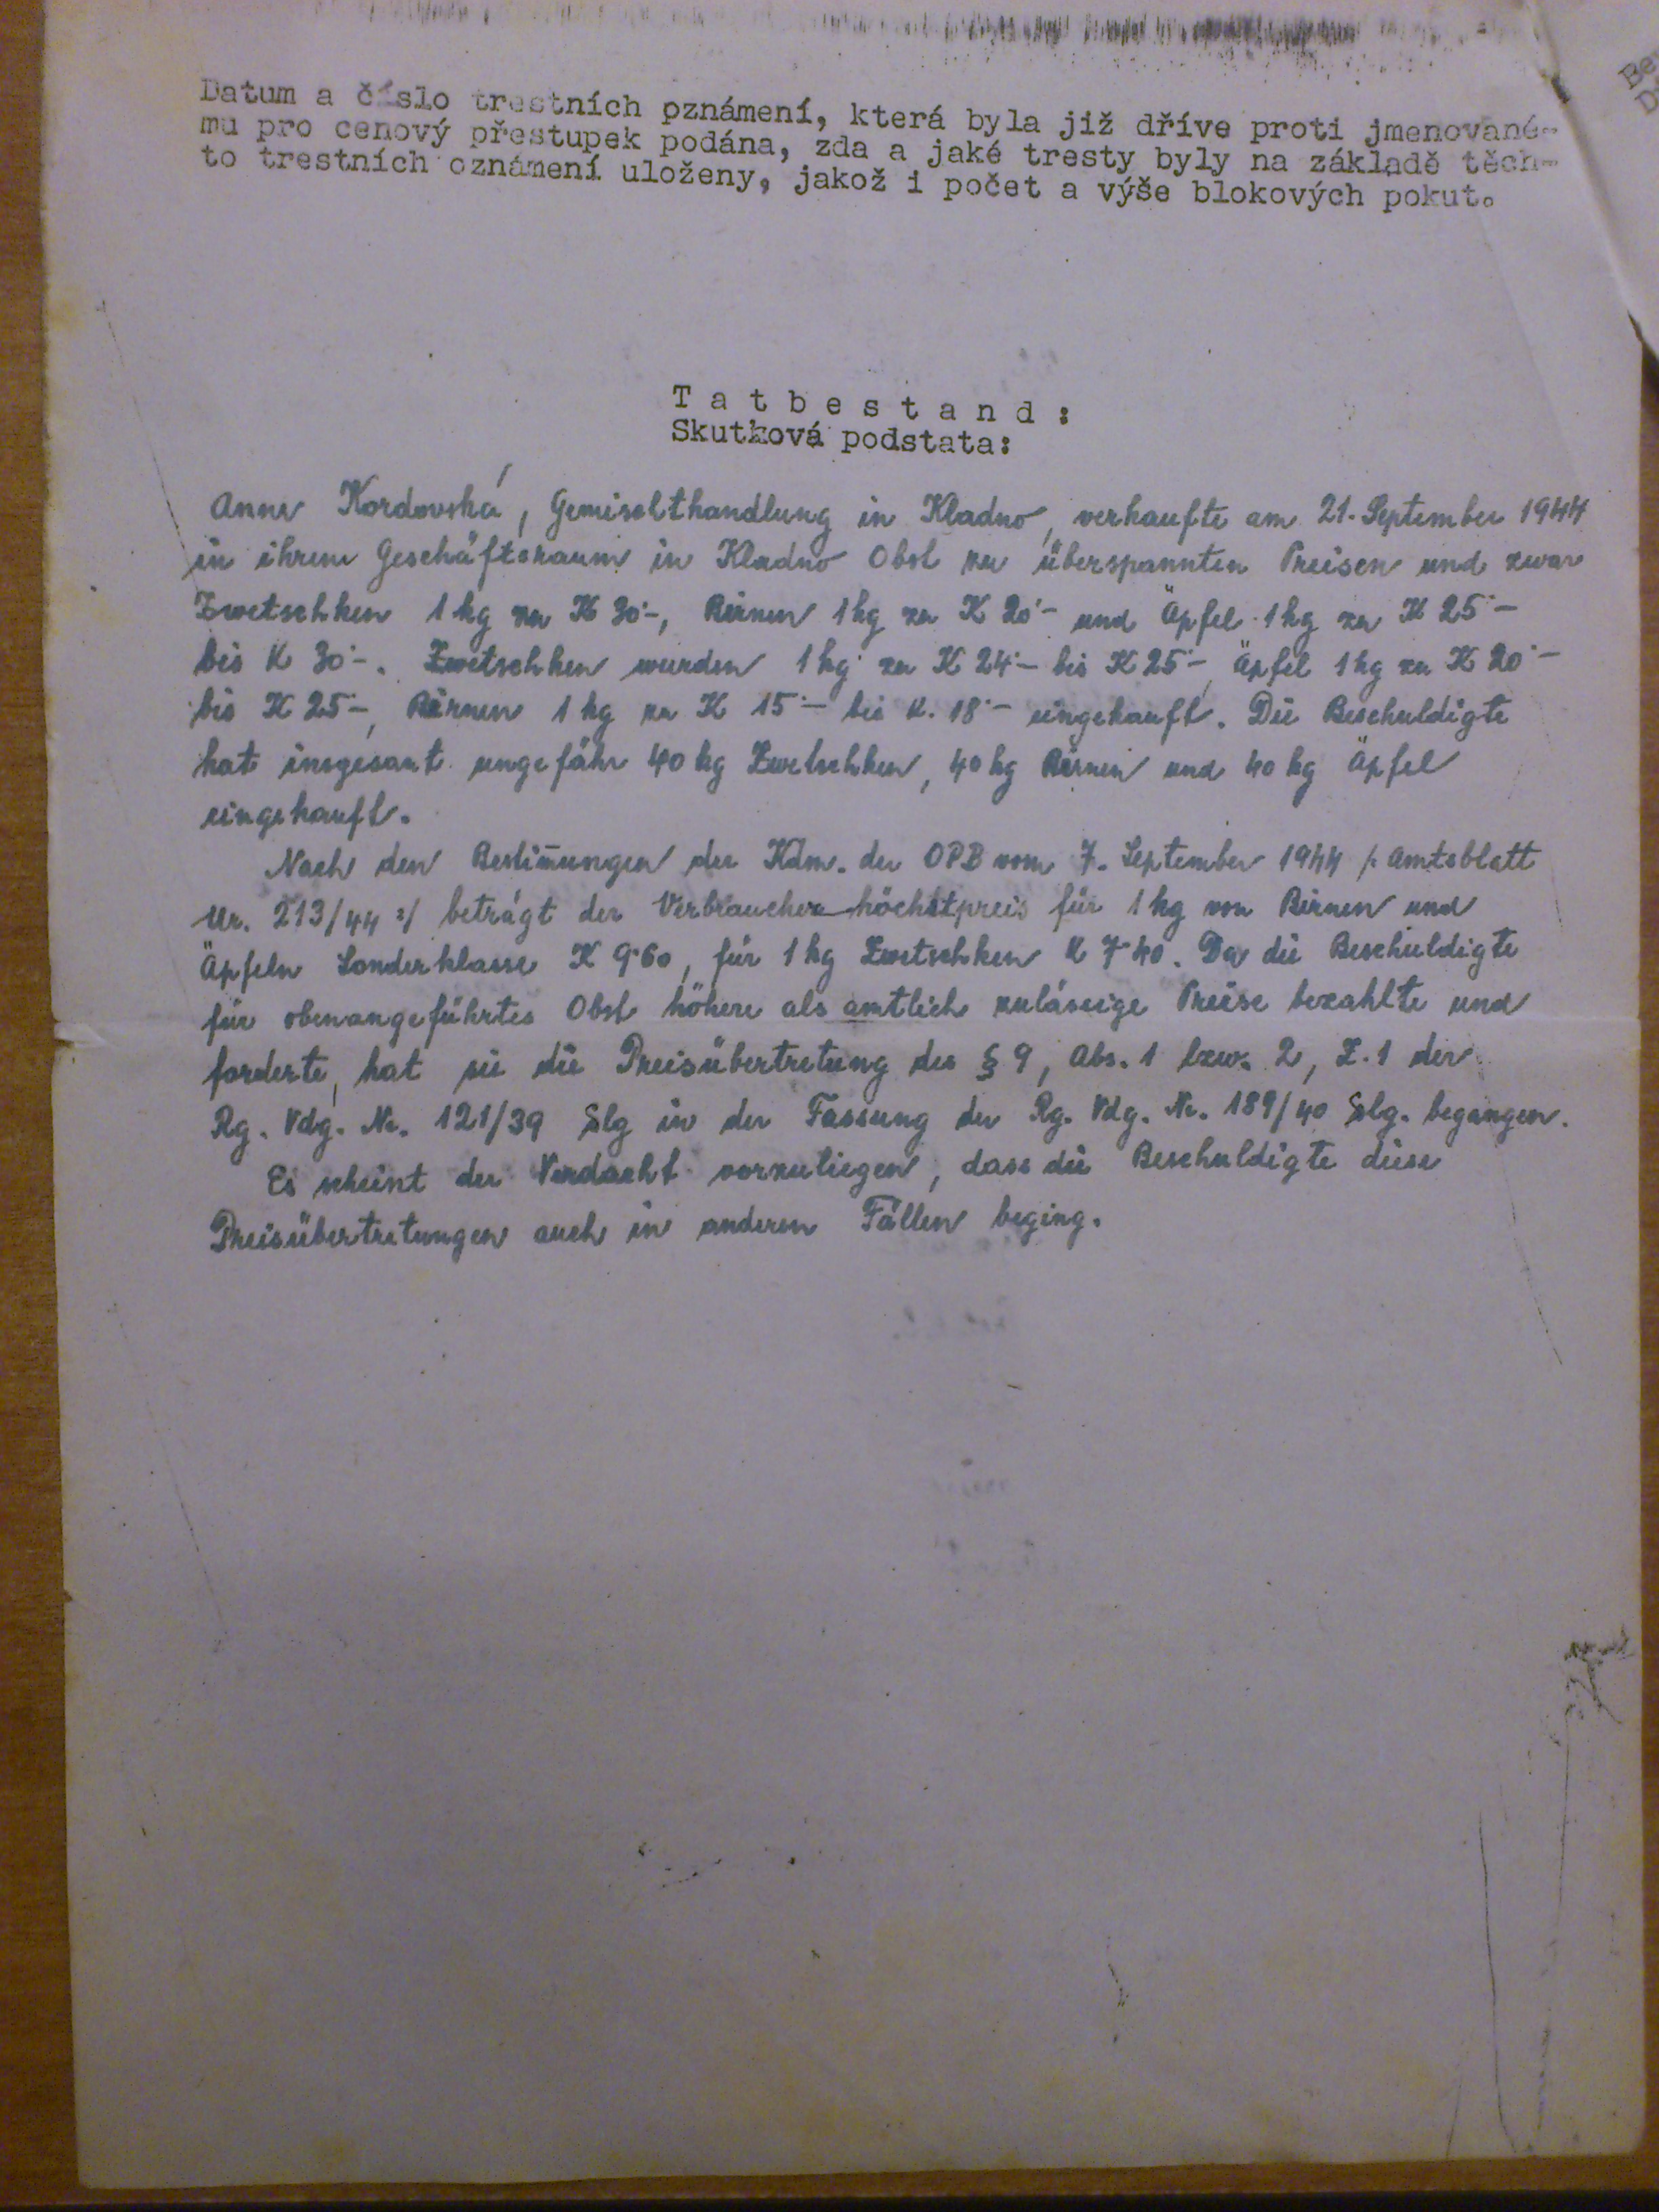 Datum a číslo trestních oznámení, která byla již dříve proti jmenované-
mu pro cenový přestupek podána, zda a jaké tresty byly na základě těch-
to trestních oznámení uloženy, jakož i počet a výše blokových pokut.
T a t b e s t a n d :
Skutková podstata:
Anna Kordovská, Gemischthandlung in Kladno, verkaufte am 21. September 1944
in ihrem Geschäftsraum in Kladno Obst zu überspannten Preisen und zwar
Zwetschken 1 kg zu K 30·-, Birnen 1 kg zu K 20·- und Äpfel 1 kg zu K 25·-
bis K 30·-. Zwetschken wurden 1 kg zu K 24·- bis K 25·-, Äpfel 1 kg zu K 20·-
bis K 25·-, Birnen 1 kg zu K 15·- bis K. 18·- eingekauft. Die Beschuldigte
hat insgesamt ungefähr 40 kg Zwetschken, 40 kg Birnen und 40 kg Äpfel
eingekauft.
Nach den Bestim̅ungen der Kdm. der OPB vom 7. September 1944 /: Amtsblatt
Nr. 213/44 :/ beträgt der Verbraucherhöchstpreis für 1 kg von Birnen und
Äpfeln Sonderklasse K 9·60, für 1 kg Zwetschken K 7·40. Da die Beschuldigte
für obenangeführtes Obst höhere als amtlich zulässige Preise bezahlte und
forderte, hat sie die Preisübertretung des § 9, Abs. 1 bzw. 2, Z. 1 der
Rg. Vdg. Nr. 121/39 Slg in der Fassung der Rg. Vdg. Nr. 189/40 Slg. begangen.
Es scheint der Verdacht vorzuliegen, dass die Beschuldigte diese
Preisübertretungen auch in anderen Fällen beging.